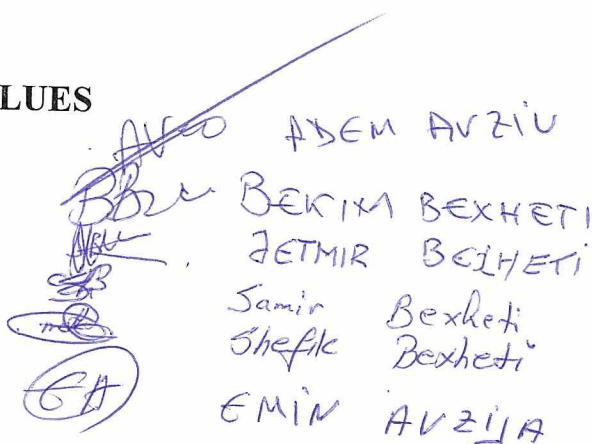 LUES
ADEM AVZIU
BEKIM BEXHETI
JETMIR BEXHETI
Samir Bexheti
Shefik Bexheti
EA EMIN AVZIJA